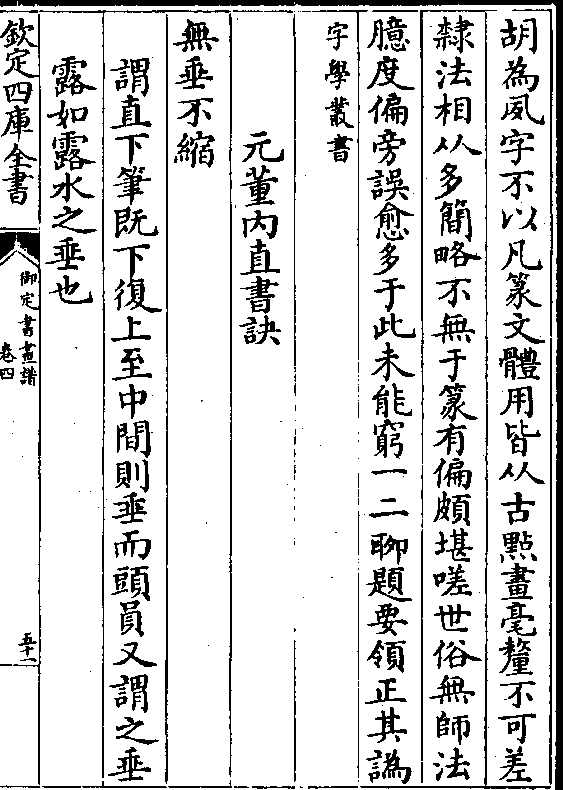 胡為夙字不以凡篆文體用皆从古點畫毫釐不可差
隸法相从多簡略不無于篆有偏頗堪嗟世俗無師法
臆度偏旁誤愈多于此未能窮一二聊題要領正其譌
字學叢書
元董内直書訣
無垂不縮
謂直下筆既下復上至中間則垂而頭員又謂之垂
露如露水之垂也
欽定四庫全書
御定書畫譜
卷四
五十一